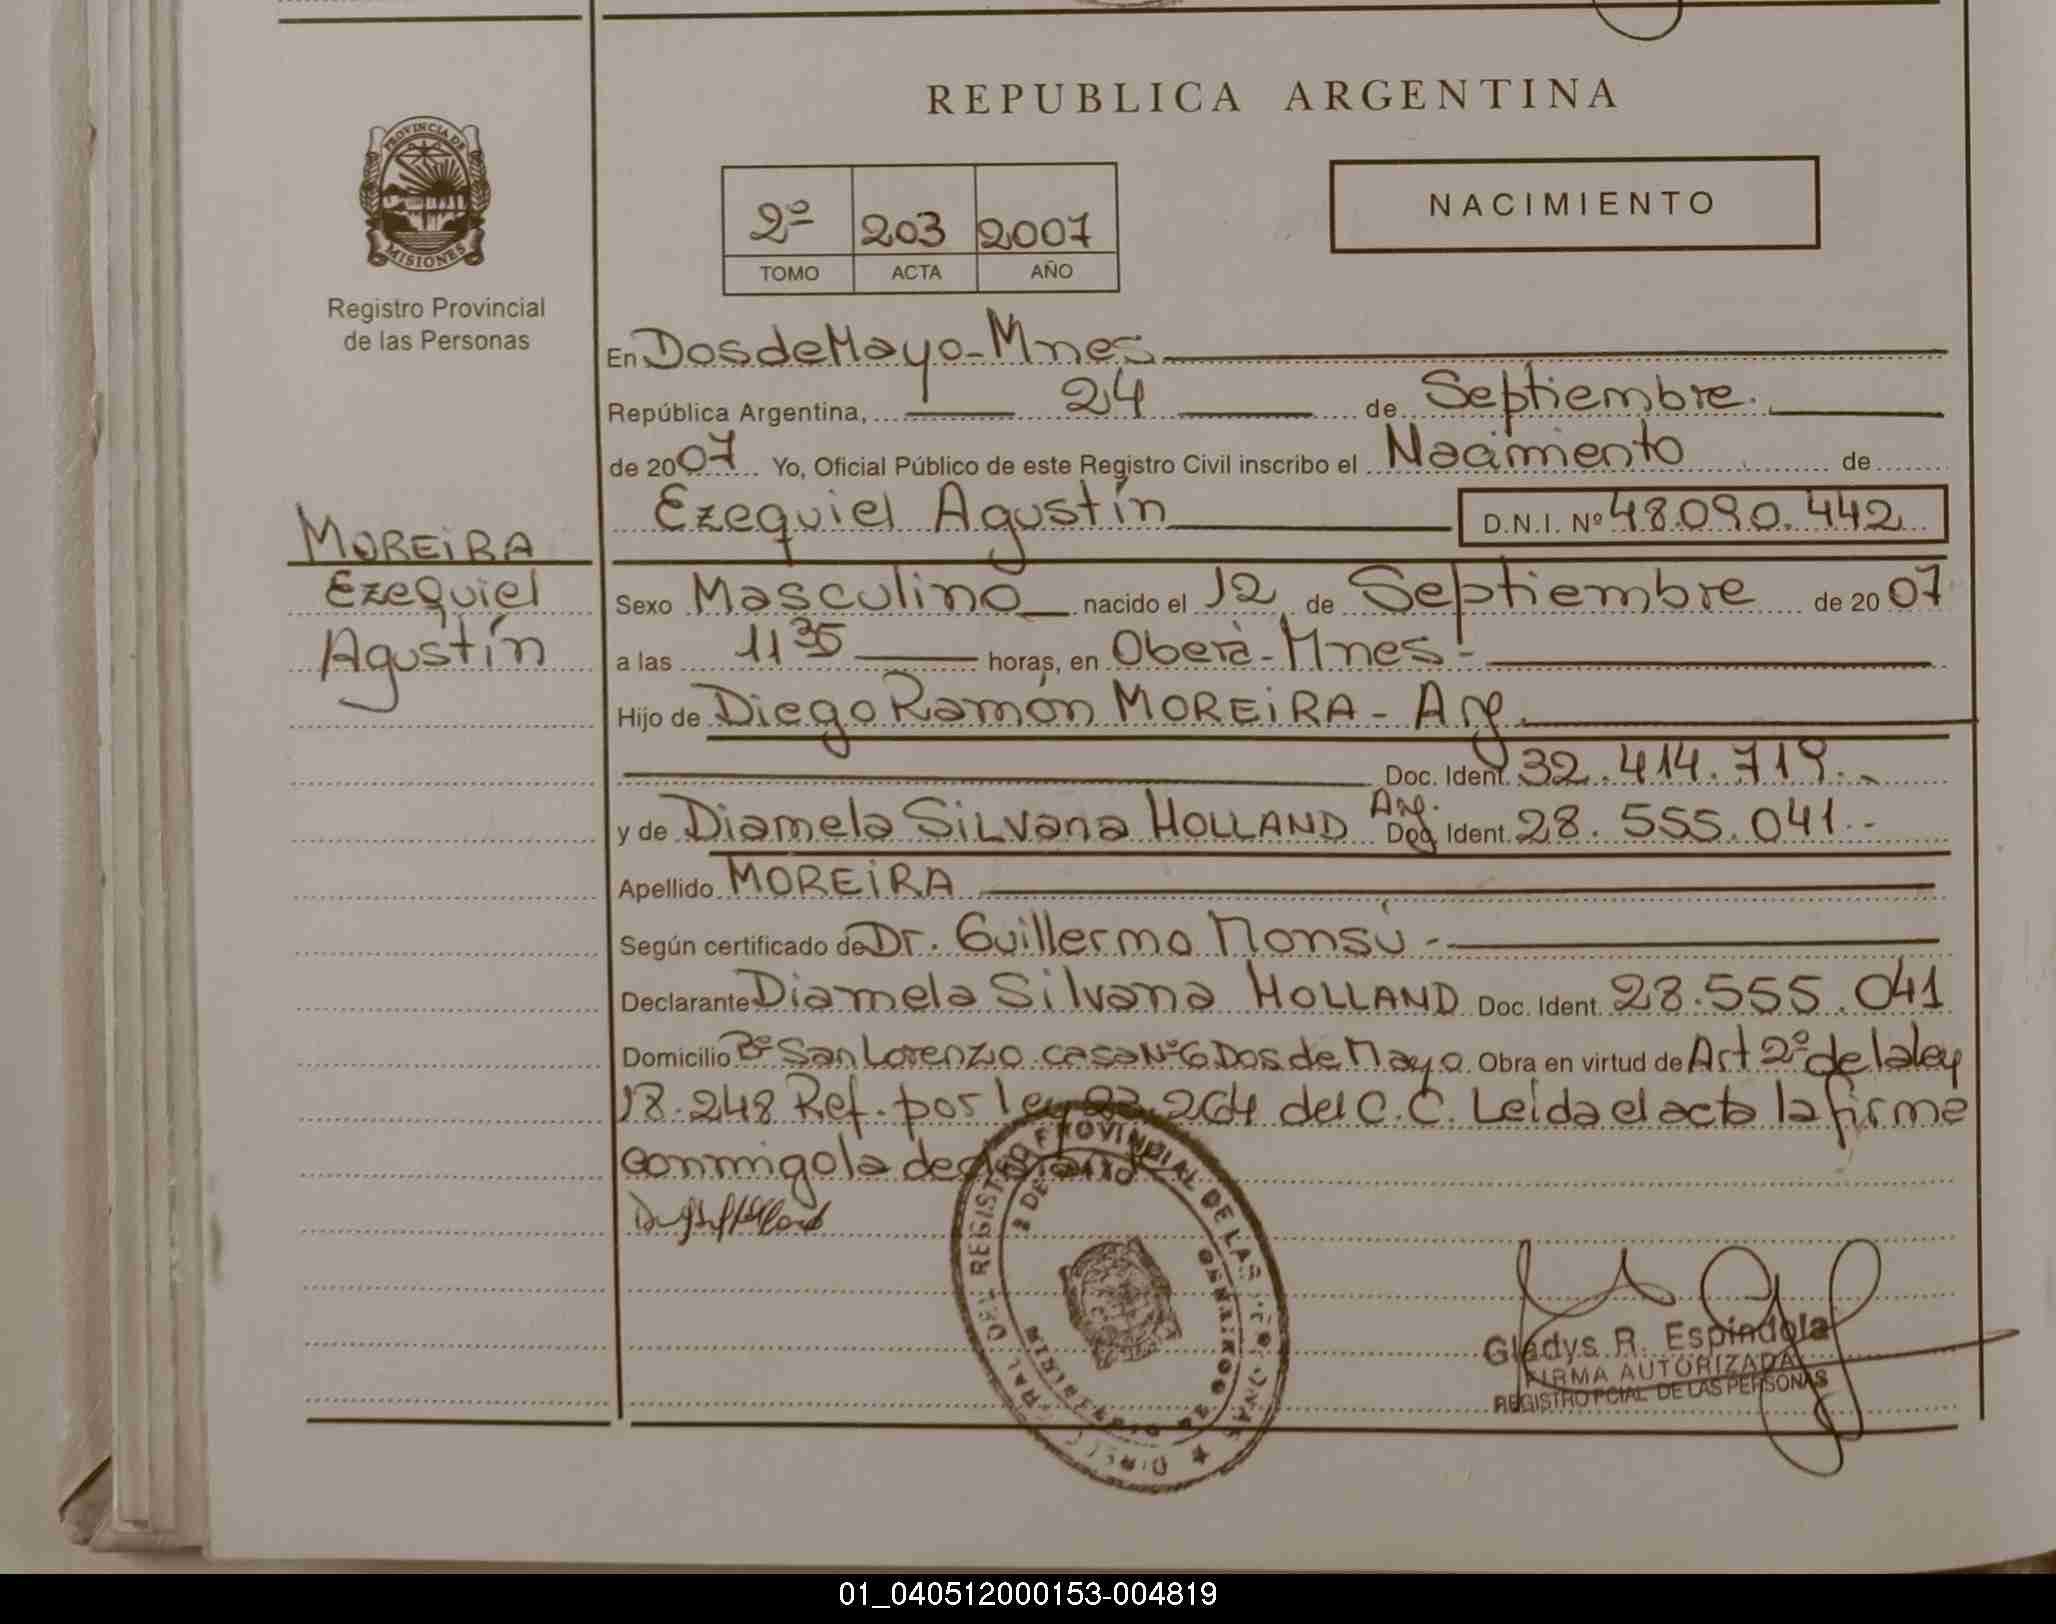 REPUBLICA ARGENTINA
PROVINCIA DE
MISIONES
Registro Provincial
de las Personas
2º 203 2007
TOMO ACTA AÑO
NACIMIENTO
En Dos de Mayo - Mnes
República Argentina, 24 de Septiembre.
de 2007 Yo, Oficial Público de este Registro Civil inscribo el Nacimiento de
Ezequiel Agustín D.N.I. Nº 48.090.442
MOREIRA
Ezequiel
Agustín
Sexo Masculino nacido el 12 de Septiembre de 2007
a las 11 35 horas, en Oberà - Mnes -
Hijo de Diego Ramón MOREIRA - Arg.
Doc. Ident. 32.414.719.-
y de Diamela Silvana HOLLAND Arg. Doc. Ident. 28.555.041.-
Apellido MOREIRA
Según certificado de Dr. Guillermo Monsú -
Declarante Diamela Silvana HOLLAND Doc. Ident. 28.555.041
Domicilio Bº San Lorenzo casa Nº 6 Dos de Mayo Obra en virtud de Art 2º de la ley
18.248 Ref. por ley 23.264 del C.C. Leída el acta la firme
conmigo la declarante
DEL REGISTRO PROVINCIAL DE LAS PERSONAS
2 DE MAYO
Gladys R. Espindola
FIRMA AUTORIZADA
REGISTRO PCIAL. DE LAS PERSONAS
01_040512000153-004819